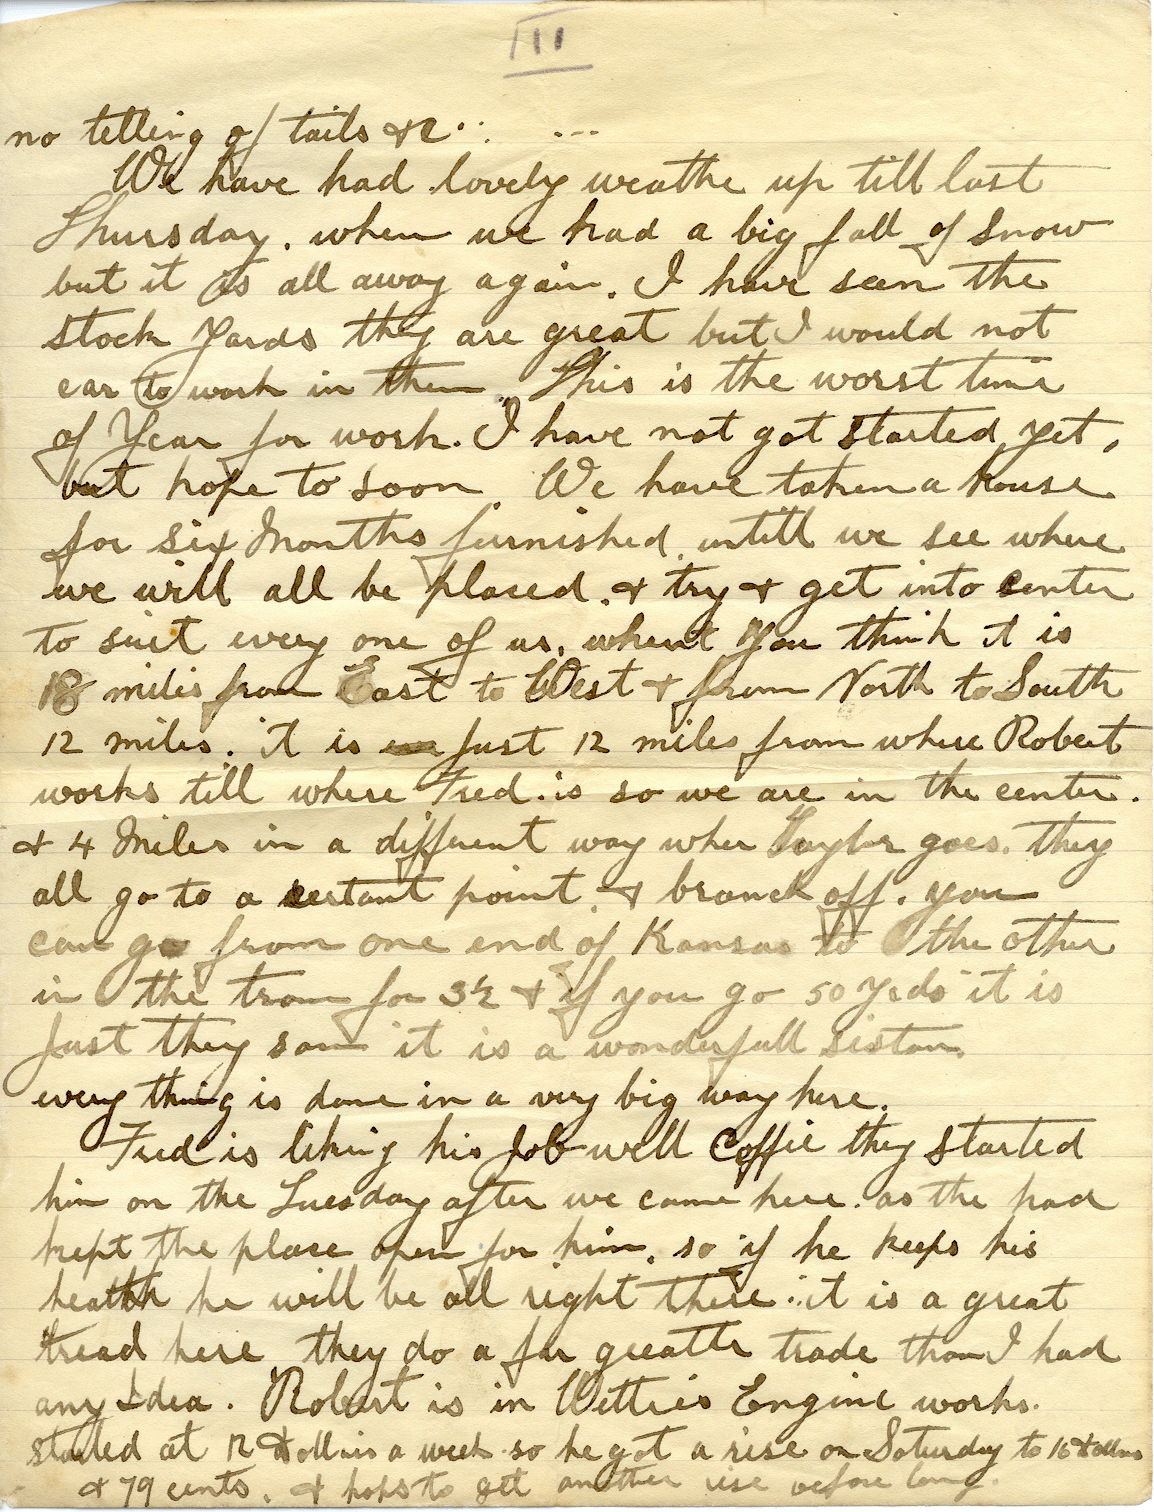 III
no telling of tails &c. . . ...
We have had lovely weathe up till last
Thursday. when we had a big fall of Snow
but it is all away again. I have seen the
stock Yards they are great but I would not
car to work in them. This is the worst time
of Year for work. I have not got started yet,
but hope to soon. We have taken a house
for six Months furnished. untill we see where
we will all be placed. & try & get into center
to suit every one of us. when You think it is
18 miles from East to West & from North to South
12 miles. it is just 12 miles from where Robert
works till where Fred. is so we are in the center.
& 4 Miles in a different way wher Taylor goes. they
all go to a certant point. & branch off. you
can go from one end of Kansas to the other
in the tram for 3½ & if you go 50 Yrds it is
just they sam it is a wonderfull sistam.
every thing is done in a very big way here.
Fred is liking his Job well Coffie they started
him on the Tuesday after we came here. as the had
kept the place open for him. so if he keeps his
health he will be all right there. it is a great
tread here they do a far greatter trade than I had
any Idea. Robert is in Witties Engine works.
started at 12 Dollars a week. so he got a rise on Saturday to 16 Dollars
& 79 cents. & hops to get another rise before long.